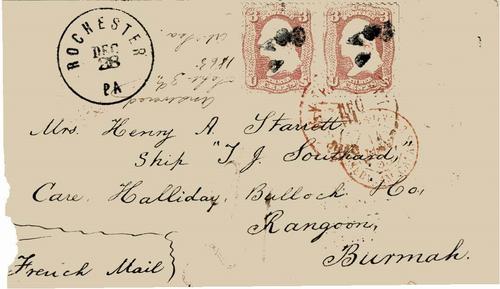 ROCHESTER
DEC
28
PA
Answered
1868
3 3
3 3
DEC
31
Mrs. Henry A. Starrett,
Ship "T. J. Southard,"
Care. Halliday, Bullock & Co,
Rangoon,
Burmah.
French Mail